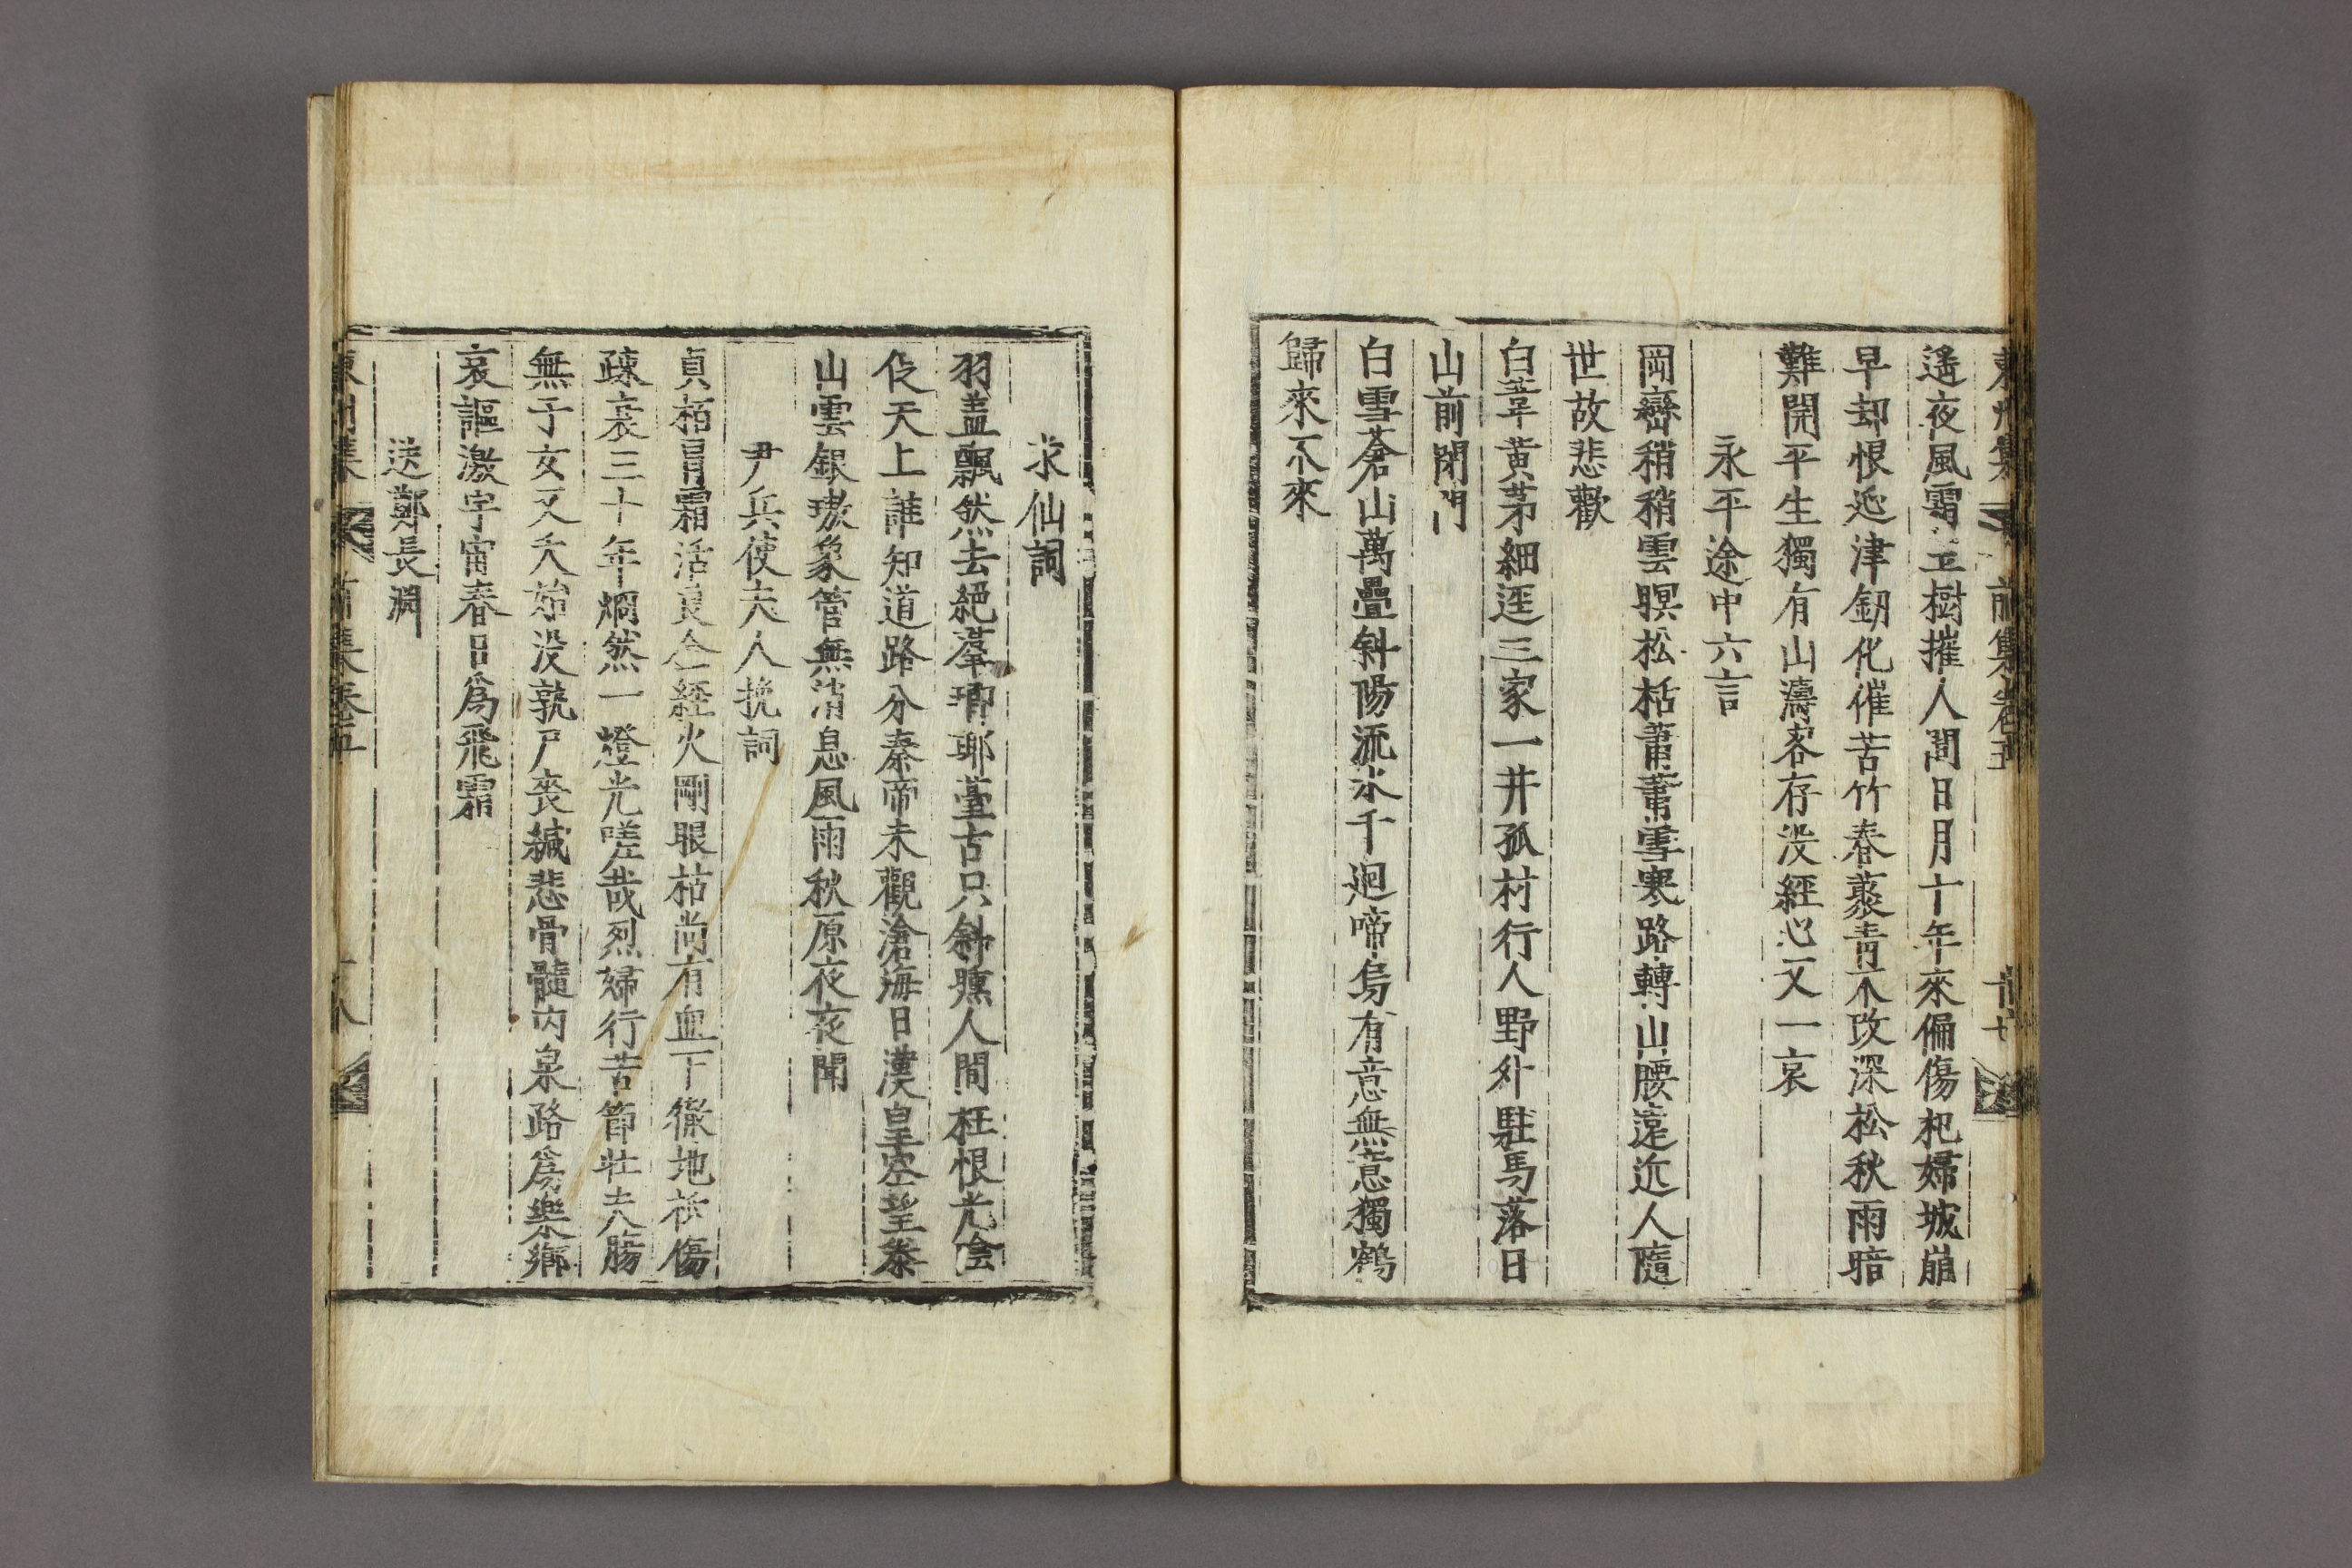 東州集 前集卷五 十七
遙夜風霜玉樹摧人間日月十年來偏傷杞婦城崩
早却恨延津釰化催苦竹春蓑青不改深松秋雨暗
難開平生獨有山濤客存没經心又一哀
永平途中六言
岡巒稍稍雲暝松栝蕭蕭雪寒路轉山腰遠近人隨
世故悲歡
白葦黃茅細逕三家一井孤村行人野外駐馬落日
山前閉門
白雪蒼山萬疊斜陽流水千迴啼烏有意無意獨鶴
歸來不來
求仙詞
羽盖飄然去絕羣瑯琊臺古只斜曛人間枉恨光陰
促天上誰知道路分秦帝未觀滄海日漢皇空望泰
山雲銀璈象管無消息風雨秋原夜夜聞
尹兵使夫人挽詞
貞栢冒霜活良金經火剛眼枯尚有血下徹地祇傷
疎衰三十年炯然一燈光嗟哉烈婦行苦節壯夫腸
無子女又夭始没孰尸喪緘悲骨髓內泉路爲樂鄉
哀謳激宇宙春日爲飛霜
送鄭長淵
東州集 前集卷五 十八